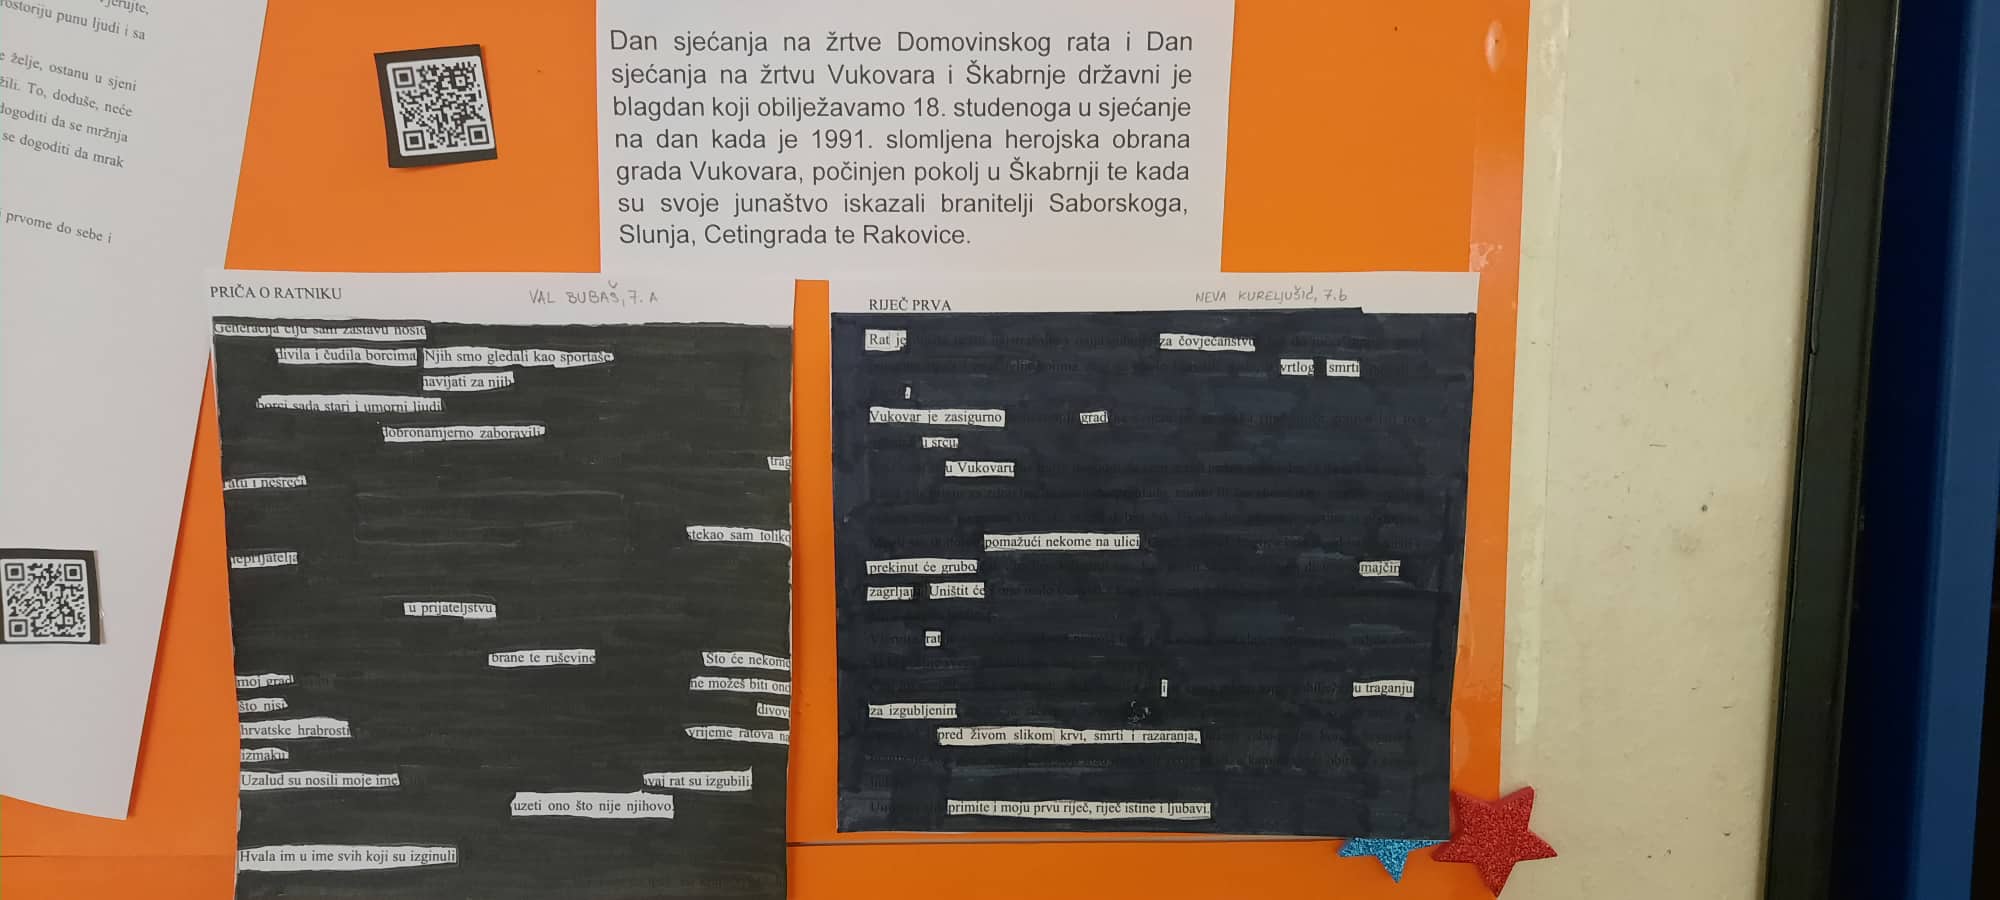 jerujte,
rostoriju punu ljudi i sa
e želje, ostanu u sjeni
žili. To, doduše, neće
dogoditi da se mržnja
se dogoditi da mrak
i prvome do sebe i
Dan sjećanja na žrtve Domovinskog rata i Dan
sjećanja na žrtvu Vukovara i Škabrnje državni je
blagdan koji obilježavamo 18. studenoga u sjećanje
na dan kada je 1991. slomljena herojska obrana
grada Vukovara, počinjen pokolj u Škabrnji te kada
su svoje junaštvo iskazali branitelji Saborskoga,
Slunja, Cetingrada te Rakovice.
PRIČA O RATNIKU VAL BUBAŠ, 7. A
Generacija čiju sam zastavu nosio
divila i čudila borcima Njih smo gledali kao sportaše
navijati za njih
borci sada stari i umorni ljudi
dobronamjerno zaboravili
trag
ratu i nesreći
stekao sam toliko
neprijatelja
u prijateljstvu
brane te ruševine Što će nekome
moj grad ne možeš biti ono
što nisi divovi
hrvatske hrabrosti vrijeme ratova na
izmaku
Uzalud su nosili moje ime ovaj rat su izgubili.
uzeti ono što nije njihovo.
Hvala im u ime svih koji su izginuli
RIJEČ PRVA NEVA KURELJUŠIĆ, 7.b
Rat je za čovječanstvo
vrtlog smrti
,
Vukovar je zasigurno grad
u srcu
u Vukovaru
pomažući nekome na ulici
prekinut će grubo majčin
zagrljaj Uništit će
rat
i u traganju
za izgubljenim
pred živom slikom krvi, smrti i razaranja,
primite i moju prvu riječ, riječ istine i ljubavi.